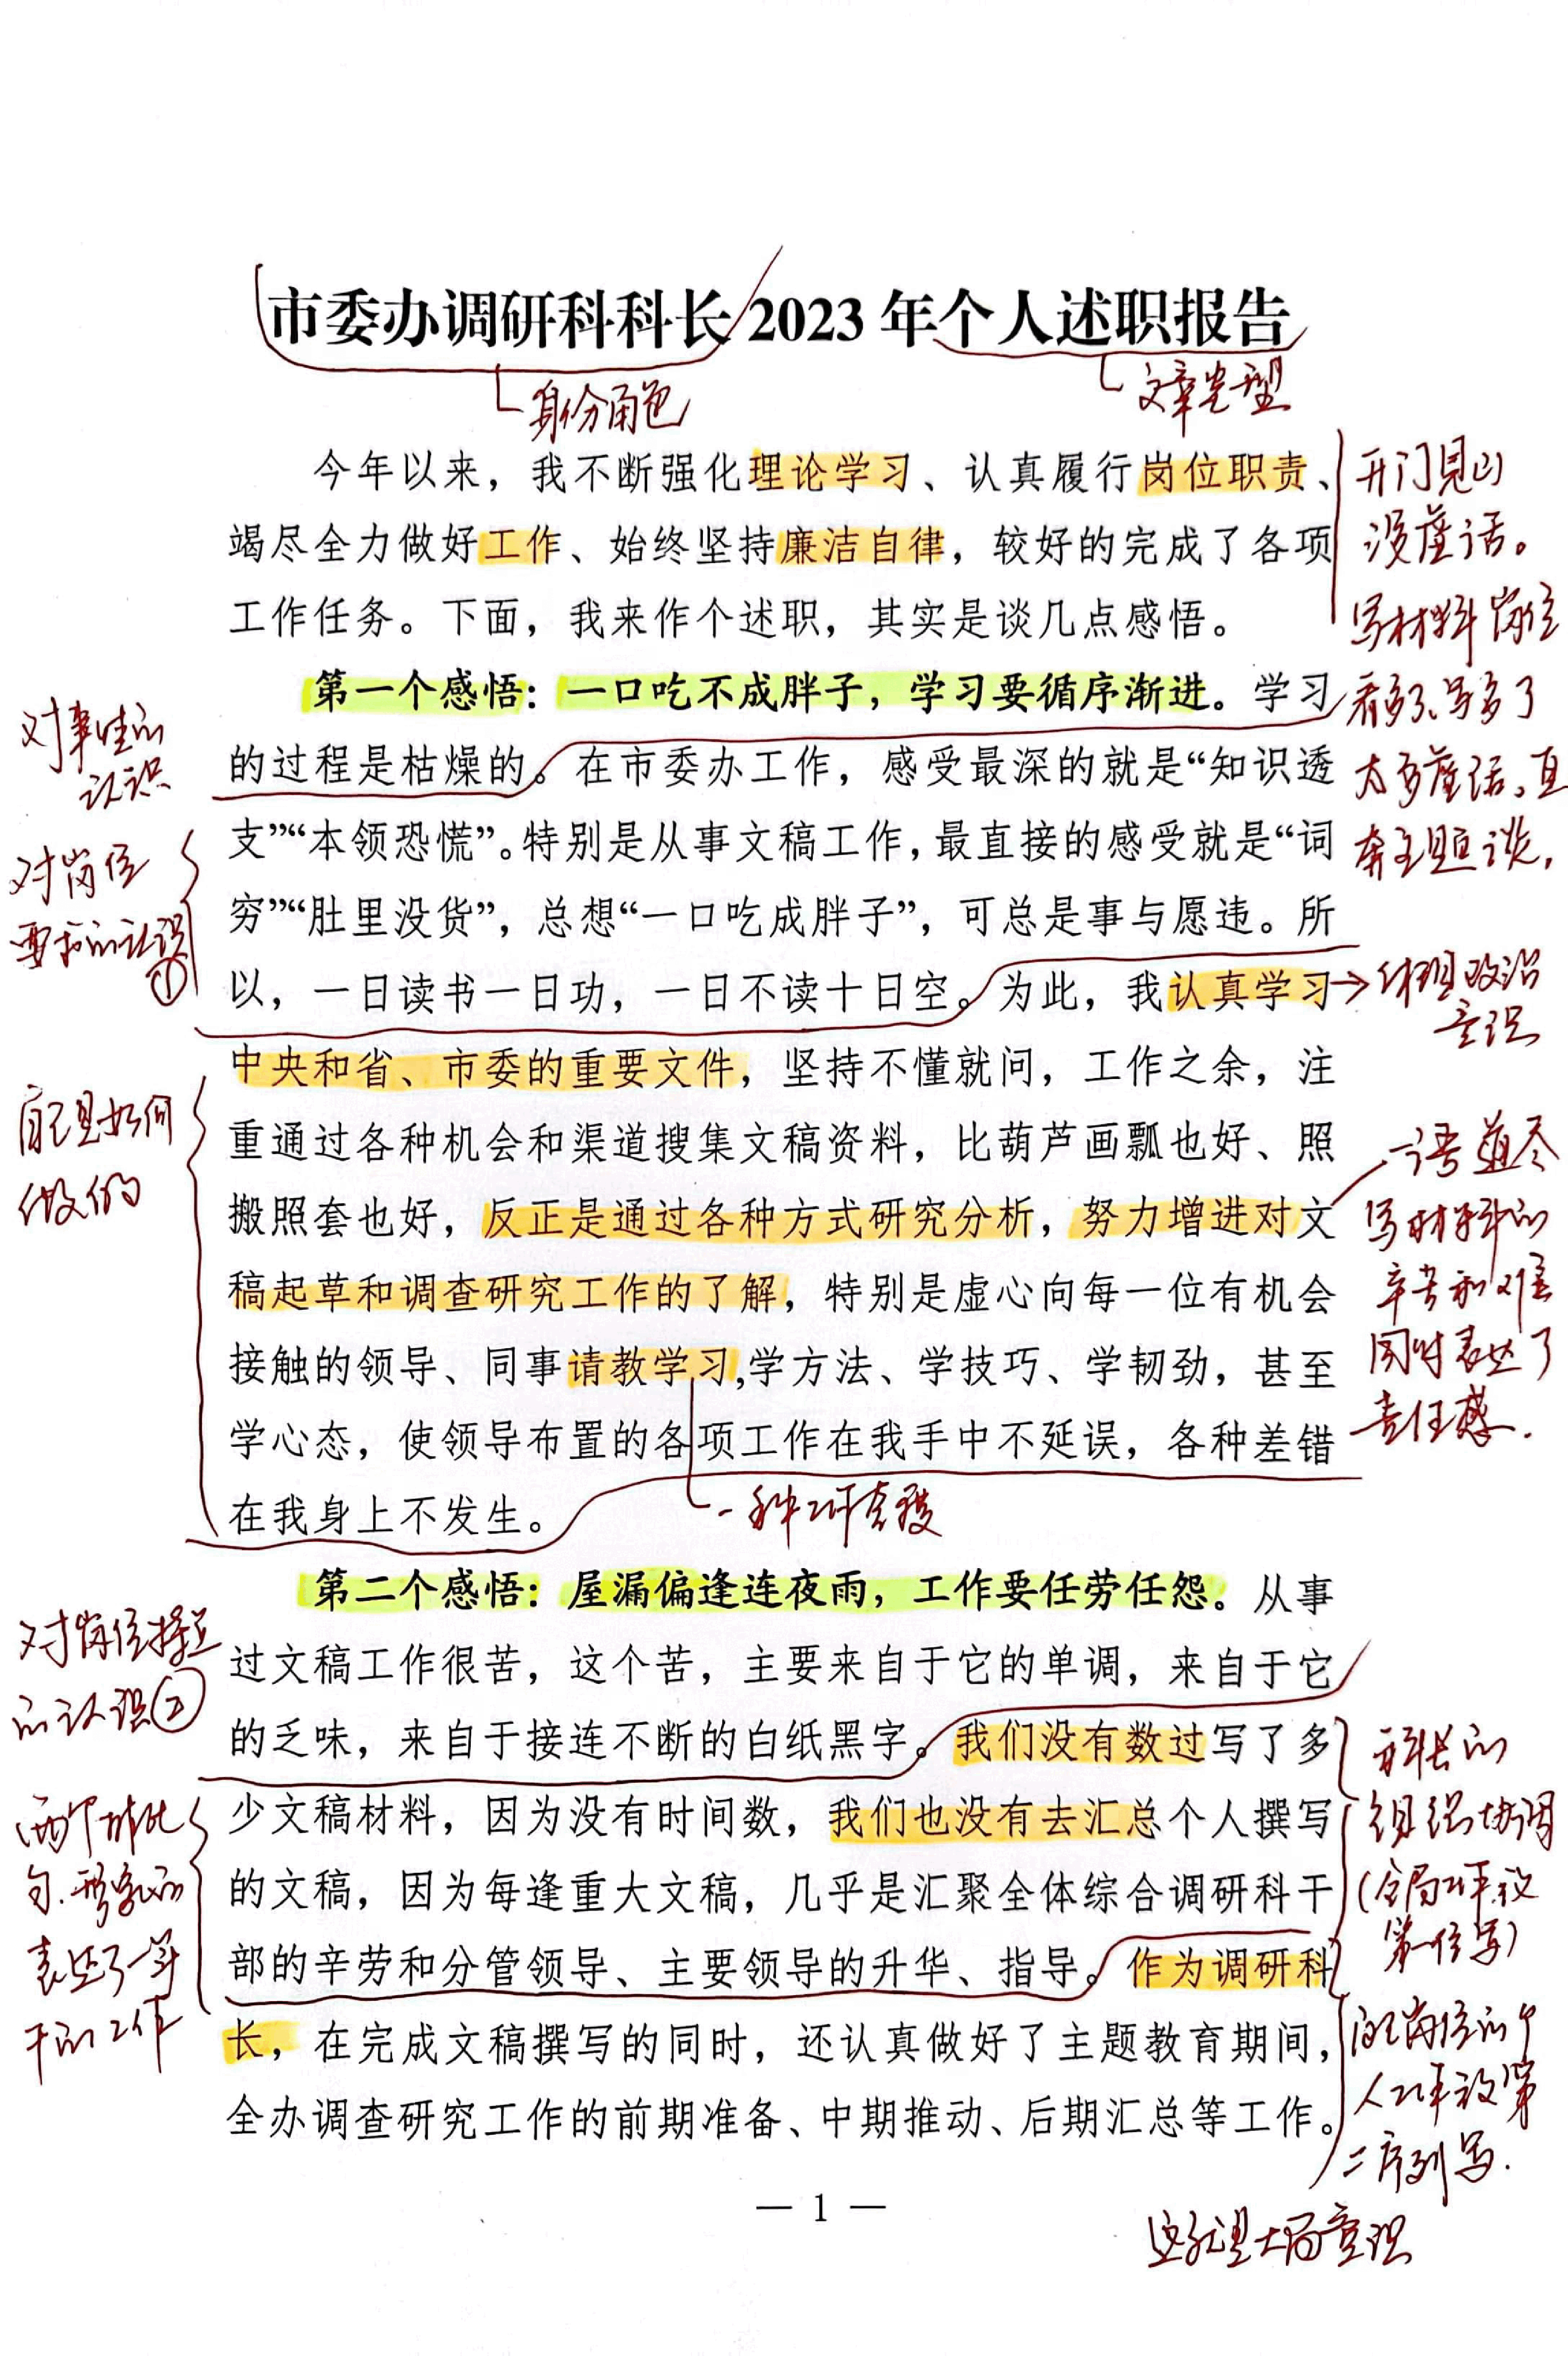 市委办调研科科长2023年个人述职报告
身份角色
文章类型
今年以来，我不断强化理论学习、认真履行岗位职责、
竭尽全力做好工作、始终坚持廉洁自律，较好的完成了各项
工作任务。下面，我来作个述职，其实是谈几点感悟。
开门见山
没虚话。
写材料岗位
看多了、写多了
太多虚话，直
奔主题谈，
第一个感悟：一口吃不成胖子，学习要循序渐进。学习
的过程是枯燥的。在市委办工作，感受最深的就是“知识透
支”“本领恐慌”。特别是从事文稿工作，最直接的感受就是“词
穷”“肚里没货”，总想“一口吃成胖子”，可总是事与愿违。所
以，一日读书一日功，一日不读十日空。为此，我认真学习
中央和省、市委的重要文件，坚持不懂就问，工作之余，注
重通过各种机会和渠道搜集文稿资料，比葫芦画瓢也好、照
搬照套也好，反正是通过各种方式研究分析，努力增进对文
稿起草和调查研究工作的了解，特别是虚心向每一位有机会
接触的领导、同事请教学习,学方法、学技巧、学韧劲，甚至
学心态，使领导布置的各项工作在我手中不延误，各种差错
在我身上不发生。
对事情的
认识
对岗位
要求的认识
①
自己是如何
做的
体现政治
意识
一语道尽
写材料的
辛苦和难
同时表达了
责任感.
一种工作态度
第二个感悟：屋漏偏逢连夜雨，工作要任劳任怨。从事
过文稿工作很苦，这个苦，主要来自于它的单调，来自于它
的乏味，来自于接连不断的白纸黑字。我们没有数过写了多
少文稿材料，因为没有时间数，我们也没有去汇总个人撰写
的文稿，因为每逢重大文稿，几乎是汇聚全体综合调研科干
部的辛劳和分管领导、主要领导的升华、指导。作为调研科
长，在完成文稿撰写的同时，还认真做好了主题教育期间，
全办调查研究工作的前期准备、中期推动、后期汇总等工作。
对岗位
的认识②
两个排比
句.形象的
表达了一年
干的工作
科长的
组织协调
(全局工作放
第一位写)
岗位的个
人工作放第
二序列写.
这就是大局意识
— 1 —